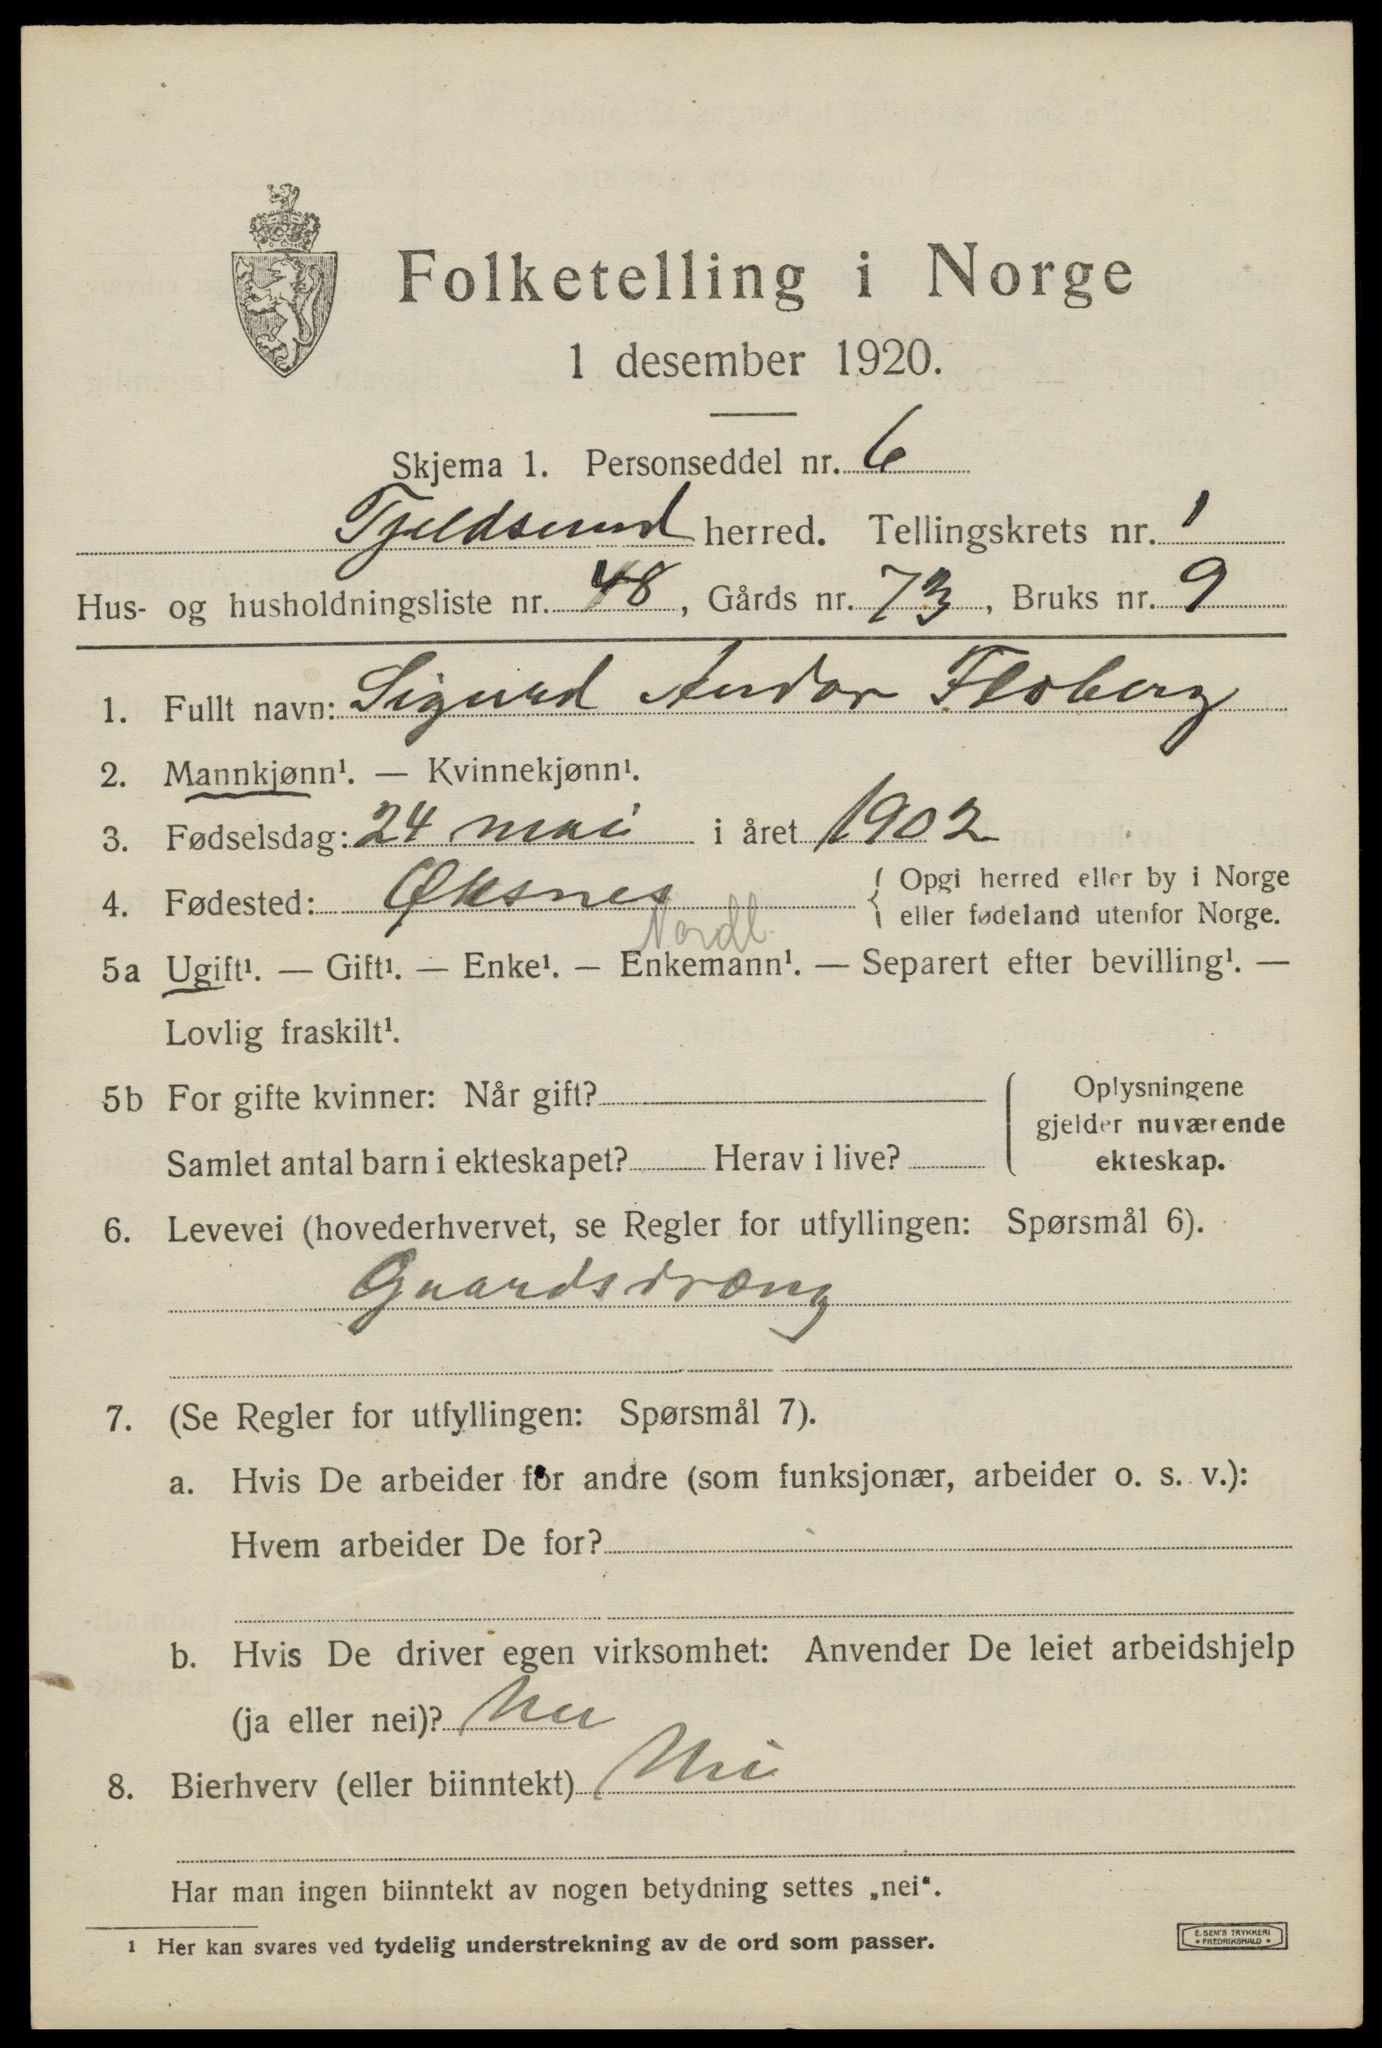 Folketelling i Norge
1 desember 1920.
Skjema 1. Personseddel nr. 6
Tjeldsund herred. Tellingskrets nr. 1
Hus- og husholdningsliste nr. 48, Gårds nr. 73, Bruks nr. 9
1. Fullt navn: Sigurd Andor Floberg
2. Mannkjønn¹. — Kvinnekjønn¹.
3. Fødselsdag: 24 mai i året 1902
4. Fødested: Øksnes { Opgi herred eller by i Norge
eller fødeland utenfor Norge.
Nordl.
5a Ugift¹. — Gift¹. — Enke¹. — Enkemann¹. — Separert efter bevilling¹. —
Lovlig fraskilt¹.
5b For gifte kvinner: Når gift?
Samlet antal barn i ekteskapet? Herav i live?
Oplysningene
gjelder nuværende
ekteskap.
6. Levevei (hovederhvervet, se Regler for utfyllingen: Spørsmål 6).
Gaardsdræng
7. (Se Regler for utfyllingen: Spørsmål 7).
a. Hvis De arbeider for andre (som funksjonær, arbeider o. s. v.):
Hvem arbeider De for?
b. Hvis De driver egen virksomhet: Anvender De leiet arbeidshjelp
(ja eller nei)? Nei
8. Bierhverv (eller biinntekt) Nei
Har man ingen biinntekt av nogen betydning settes „nei“.
¹ Her kan svares ved tydelig understrekning av de ord som passer.
E. SEM'S TRYKKERI
• FREDRIKSHALD •